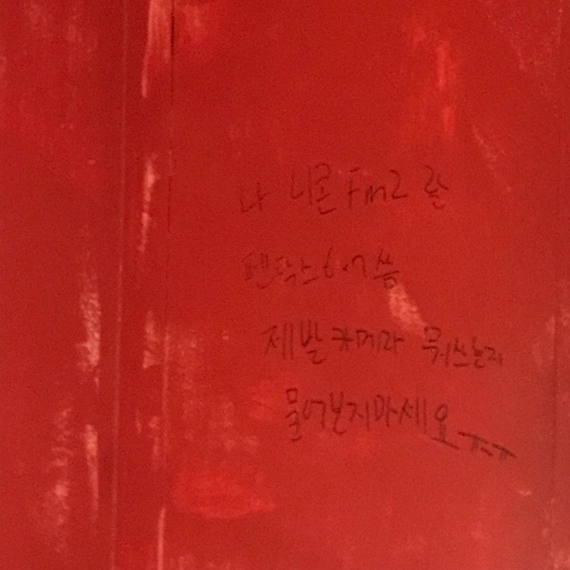 나 니콘 Fm2 랑
펜탁스 6×7 씀
제발 카메라 뭐쓰는지
물어보지마세요 ㅠㅠ